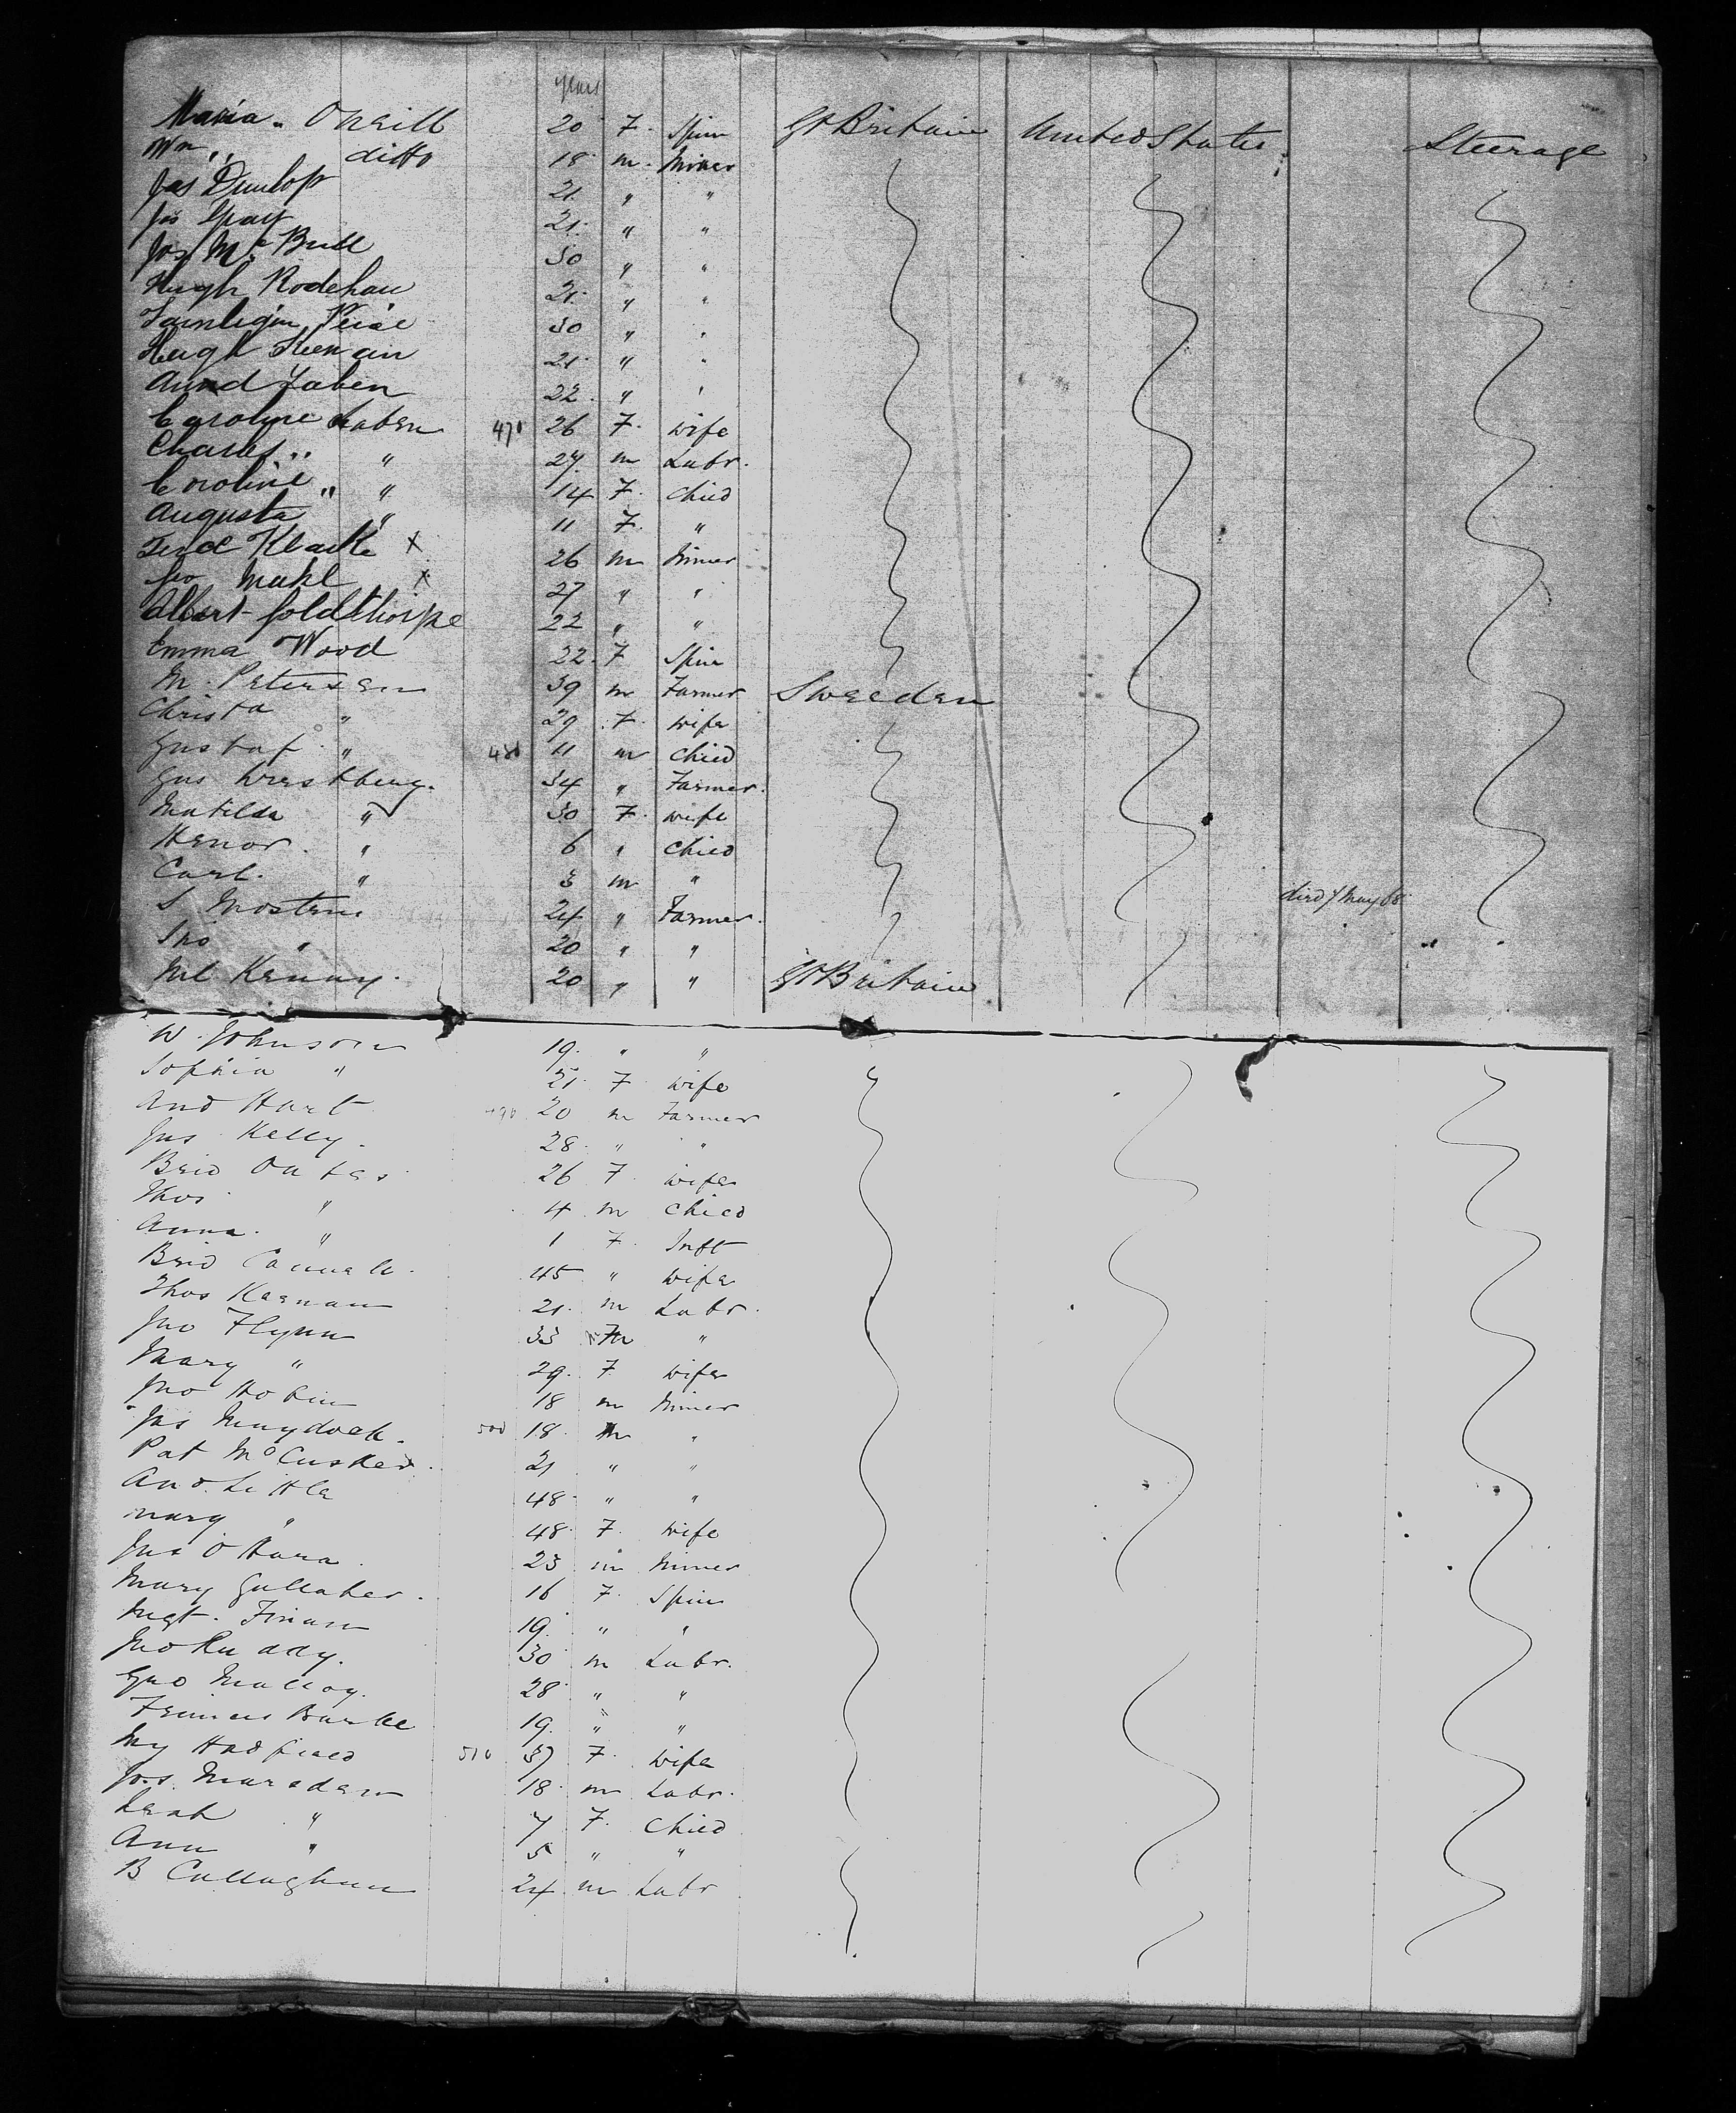 years
Maria " O Neill 20 F. Spin Gt Britain United States Steerage
Wm " ditto 18 m. Miner
Jas Dunlop 21 " "
Jas 21 " "
Jos Mc Bride 30 " "
Hugh 21 " "
30 " "
Hugh Keenan 21 " "
22 " "
Caroline 470 26 F. wife
Charles " " 27 m Labr.
Coroline " " 14 F. Child
Augusta " 11 F. "
Ferd x 26 m Miner
Jno Mahl x 27 " "
Albert Goldthorpe 22 " "
Emma Wood 22 F Spin
M. Petersen 39 m Farmer Sweeden
Christa " 29 F. wife
Gustaf " 480 11 m Child
Gus 34 " Farmer.
Matilda " 30 F. wife
" 6 " Child
Carl. " 3 m " died 7 May 68
S. 24 " Farmer.
Jno " 20 " "
Ml Kenny. 20 " " Gt Britain
W. Johnson 19. " "
Sophia " 21. F. wife
And Hart 490 20 m Farmer
Jas Kelly. 28. " "
Brid Oates 26 F. wife
Thos " 4 m Child
Anna. " 1 F. Inft
Brid 45 " wife
Thos Keenan 21. m Labr.
Jno Flynn 33 m "
Mary " 29. F. wife
Jno 18 m Miner
Jas Murdock. 500 18. m "
Pat McCusker. 21 " "
And. Little 48. " "
Mary " 48. F. wife
Jas O Hara. 23 m Miner
Mary Gullaher. 16 F. Spin
Mgt. Finan 19. " "
Jno Ruddy. 30 m Labr.
Geo Malloy. 28 " "
Francis Burke 19. " "
My Hadfield 510 37 F. wife
Jos. Marsden 18. m Labr.
Leah " 7 F. Child
Ann " 5 " "
B Callaghan 24 m Labr